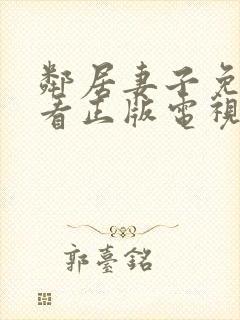 鄰居妻子免
看正版電視
郭臺銘